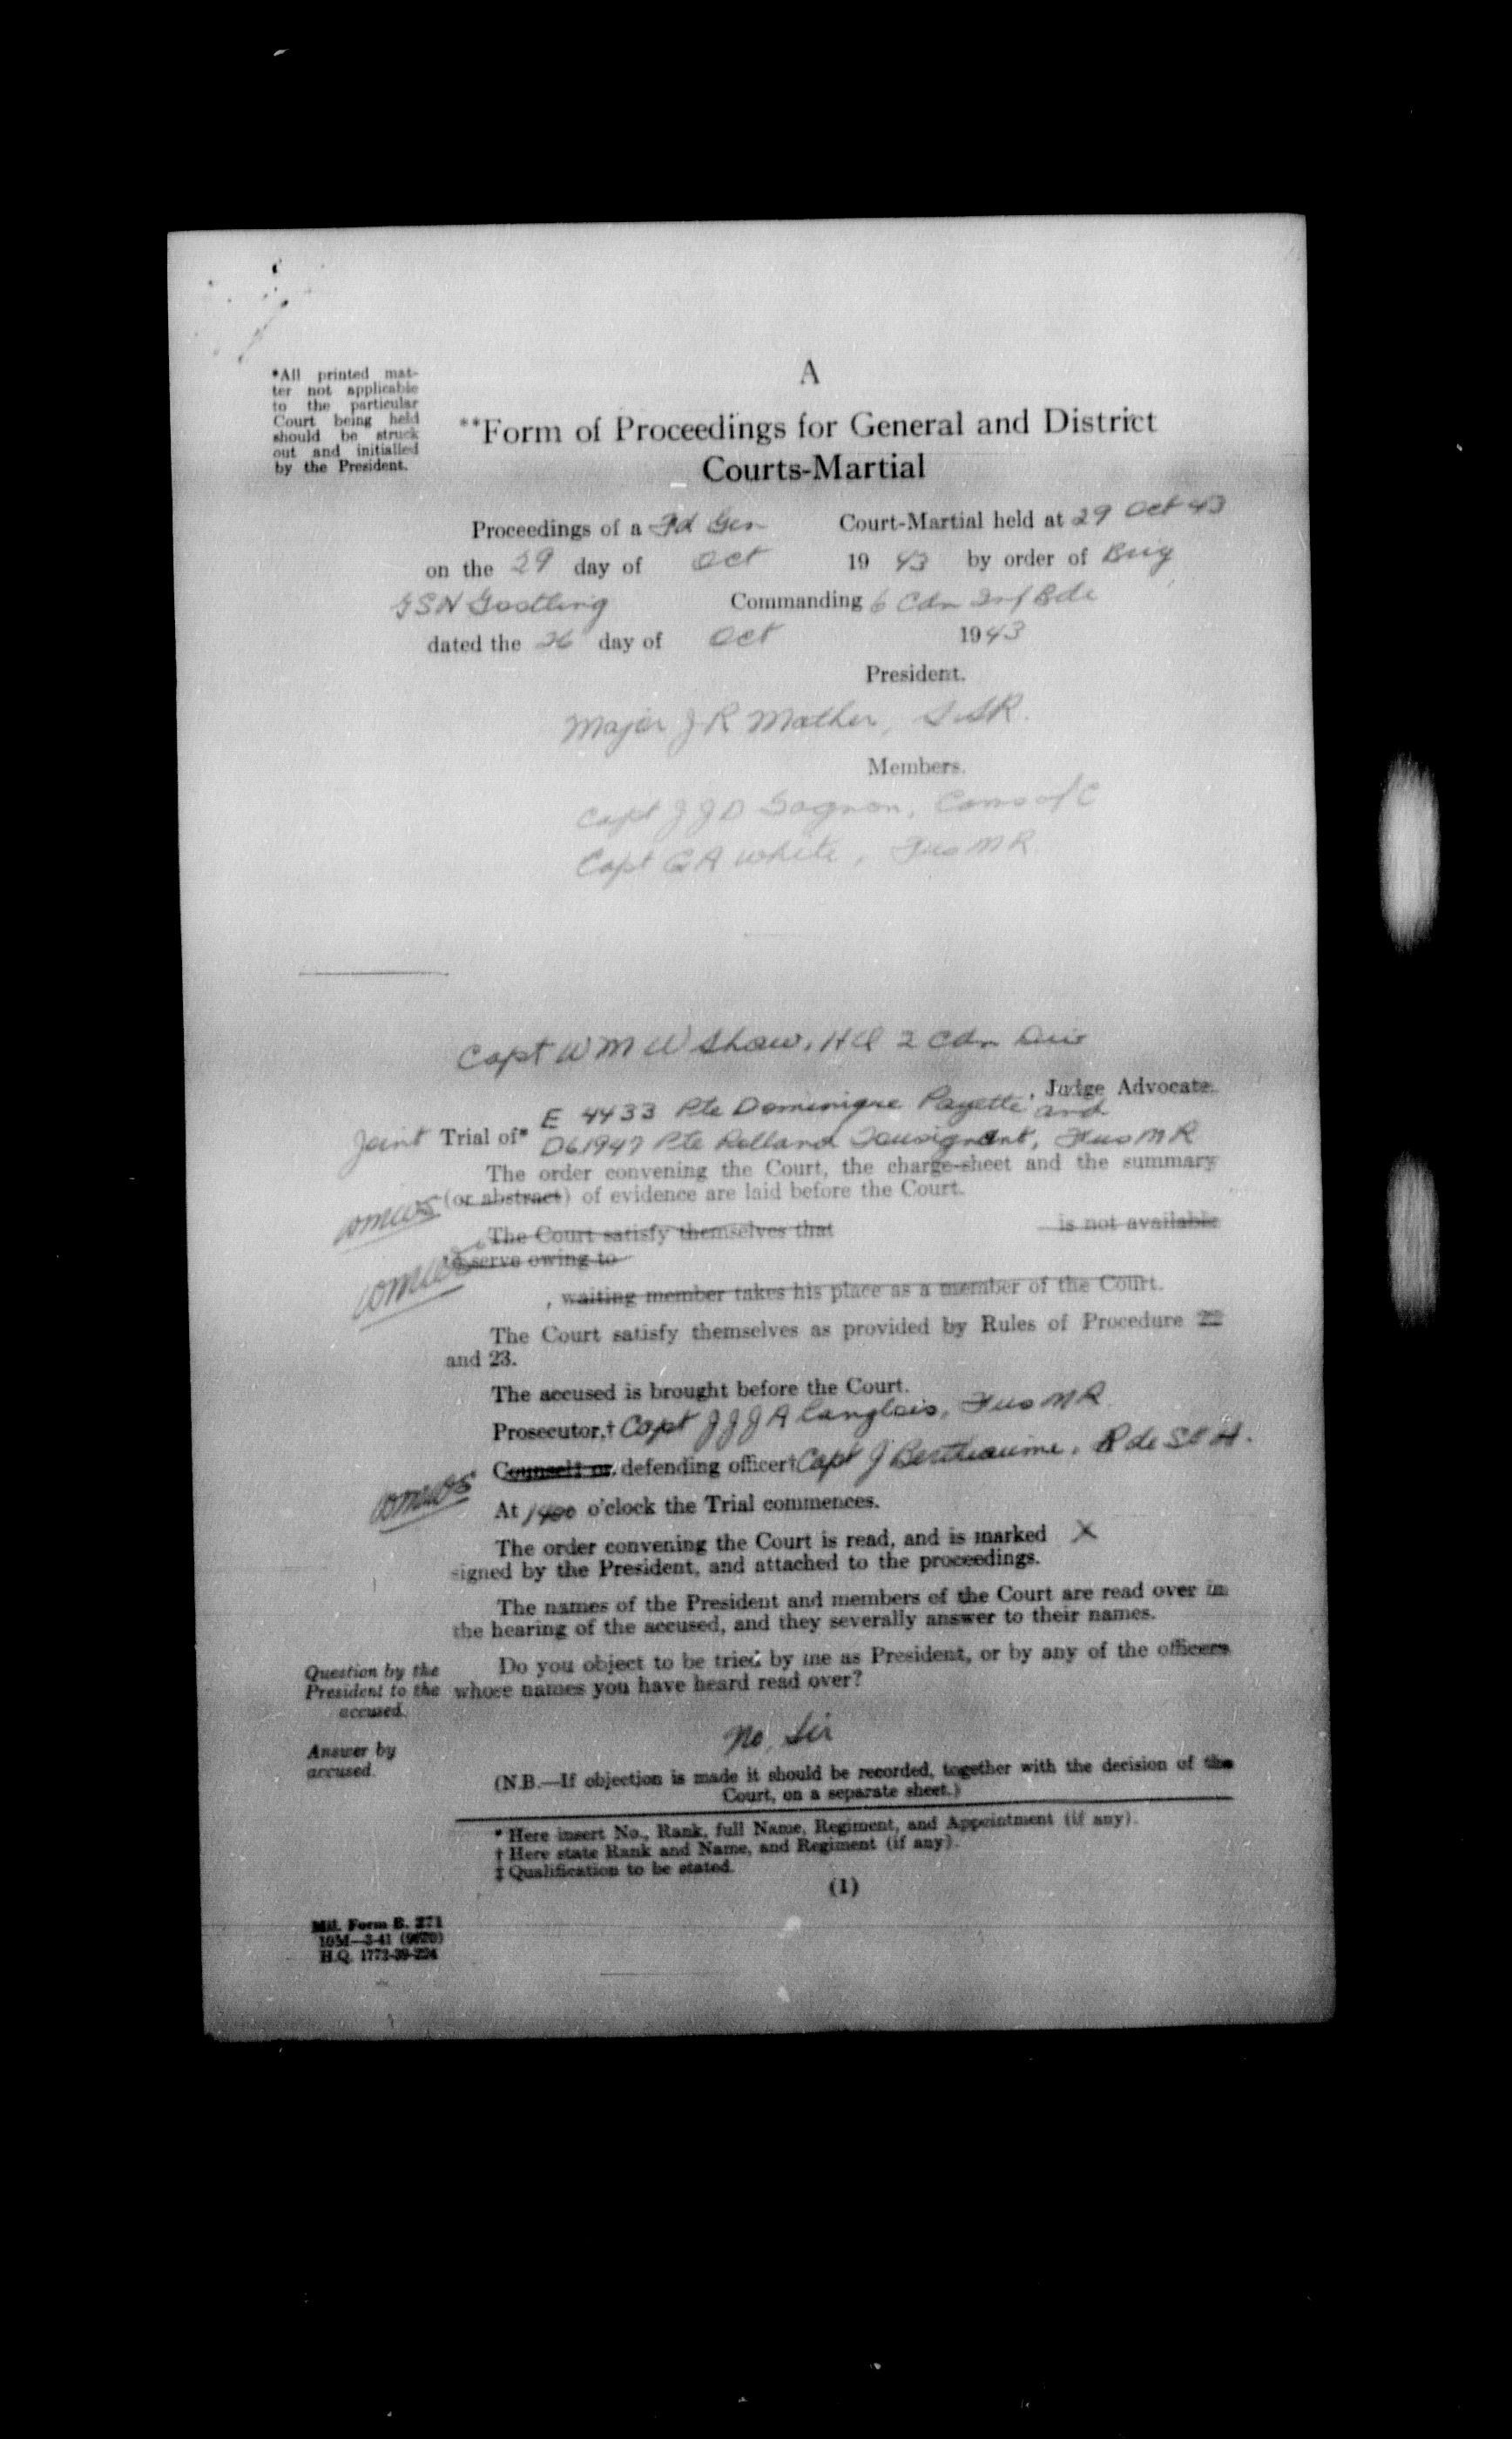 *All printed mat-
ter not applicable
to the particular
Court being held
should be struck
out and initialled
by the President.
A
**Form of Proceedings for General and District
Courts-Martial
Proceedings of a Fd Gen Court-Martial held at 29 Oct 43
on the 29 day of Oct 19 43 by order of Brig
GSN Gostling Commanding 6 Cdn Inf Bde
dated the 26 day of Oct 1943
President.
Major J R Mather, S.S.R.
Members.
Capt J J D Gagnon, Camo of C
Capt G A White, Fus M R
Capt W M W Shaw, HQ 2 Cdn Div
, Judge Advocate.
E 4433 Pte Dominique Payette and
Joint Trial of* D61947 Pte Rolland Tousignant, Fus M R
The order convening the Court, the charge-sheet and the summary
(or abstract) of evidence are laid before the Court.
The Court satisfy themselves that is not available
to serve owing to
, waiting member takes his place as a member of the Court.
The Court satisfy themselves as provided by Rules of Procedure 22
and 23.
The accused is brought before the Court.
Prosecutor,† Capt J J J A Langlois, Fus M R
Counsel‡ or defending officer† Capt J Bertheaume, R de St H.
At 1400 o'clock the Trial commences.
The order convening the Court is read, and is marked X
signed by the President, and attached to the proceedings.
The names of the President and members of the Court are read over in
the hearing of the accused, and they severally answer to their names.
Question by the
President to the
accused.
Do you object to be tried by me as President, or by any of the officers
whose names you have heard read over?
Answer by
accused.
No, Sir
(N.B.—If objection is made it should be recorded, together with the decision of the
Court, on a separate sheet.)
* Here insert No., Rank, full Name, Regiment, and Appointment (if any).
† Here state Rank and Name, and Regiment (if any).
‡ Qualification to be stated.
(1)
Mil. Form B. 271
10M—3-41 (9620)
H.Q. 1772-39-224